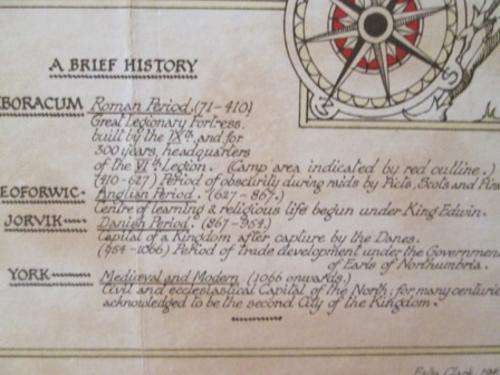 A BRIEF HISTORY
BORACUM Roman Period. (71-410)
Great Legionary Fortress.
built by the IXth. and for
300 years, headquarters
of the VIth Legion. (Camp area indicated by red outline.)
(410-627) Period of obscurity during raids by Picts, Scots and
EOFORWIC. Anglian Period. (627-867.)
Centre of learning & religious life begun under King Edwin.
JORVIK Danish Period. (867-954.)
Capital of a Kingdom after capture by the Danes.
(954-1066) Period of trade development under the Governmen
of Earls of Northumbria.
YORK Mediæval and Modern (1066 onwards.)
Civil and ecclesiastical Capital of the North: for many centurie
acknowledged to be the second City of the Kingdom.